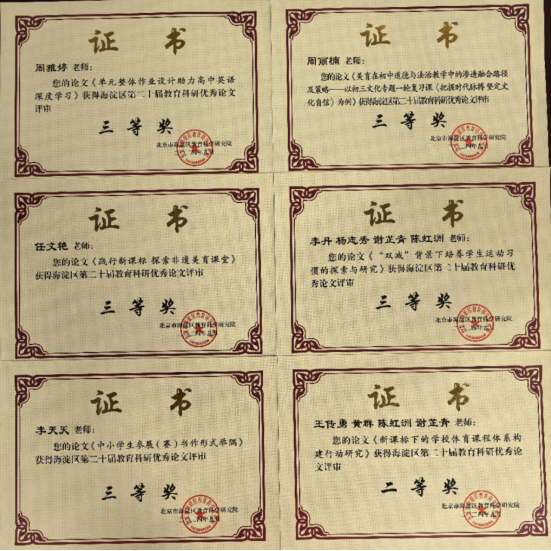 证 书
周雅婷 老师:
您的论文《单元整体作业设计助力高中英语
深度学习》获得海淀区第二十届教育科研优秀论文
评审
三 等 奖
北京市海淀区教育科学研究院
证 书
周丽楠 老师:
您的论文《美育在初中道德与法治教学中的渗透融合路径
及策略——以初三文化专题一轮复习课《把握时代脉搏 坚定文
化自信》为例》获得海淀区第二十届教育科研优秀论文评审
三 等 奖
北京市海淀区教育科学研究院
证 书
任文艳 老师:
您的论文《践行新课标 探索非遗美育课堂》
获得海淀区第二十届教育科研优秀论文评审
三 等 奖
北京市海淀区教育科学研究院
证 书
李丹 杨志秀 谢芷青 陈红洲 老师:
您的论文《“双减”背景下培养学生运动习
惯的探索与研究》获得海淀区第二十届教育科研优
秀论文评审
三 等 奖
北京市海淀区教育科学研究院
证 书
李天天 老师:
您的论文《中小学生参展(赛)书作形式举隅》
获得海淀区第二十届教育科研优秀论文评审
三 等 奖
北京市海淀区教育科学研究院
证 书
王传勇 黄群 陈红洲 谢芷青 老师:
您的论文《新课标下的学校体育课程体系构
建行动研究》获得海淀区第二十届教育科研优秀论
文评审
二 等 奖
北京市海淀区教育科学研究院